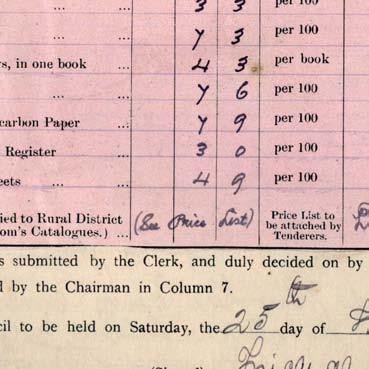 3 3 per 100
... ... 7 3 per 100
s, in one book ... 4 3 per book
... ... 7 6 per 100
carbon Paper ... 7 9 per 100
Register ... 3 0 per 100
eets ... ... 4 9 per 100
ied to Rural District
om's Catalogues.) ... (See Price List) Price List to be attached by Tenderers.
s submitted by the Clerk, and duly decided on by
d by the Chairman in Column 7.
cil to be held on Saturday, the 25th day of
(Signed)